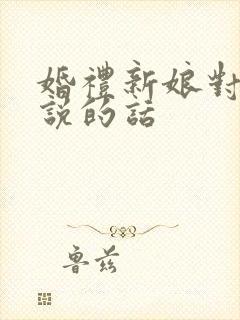 婚禮新娘對
說的話
魯茲